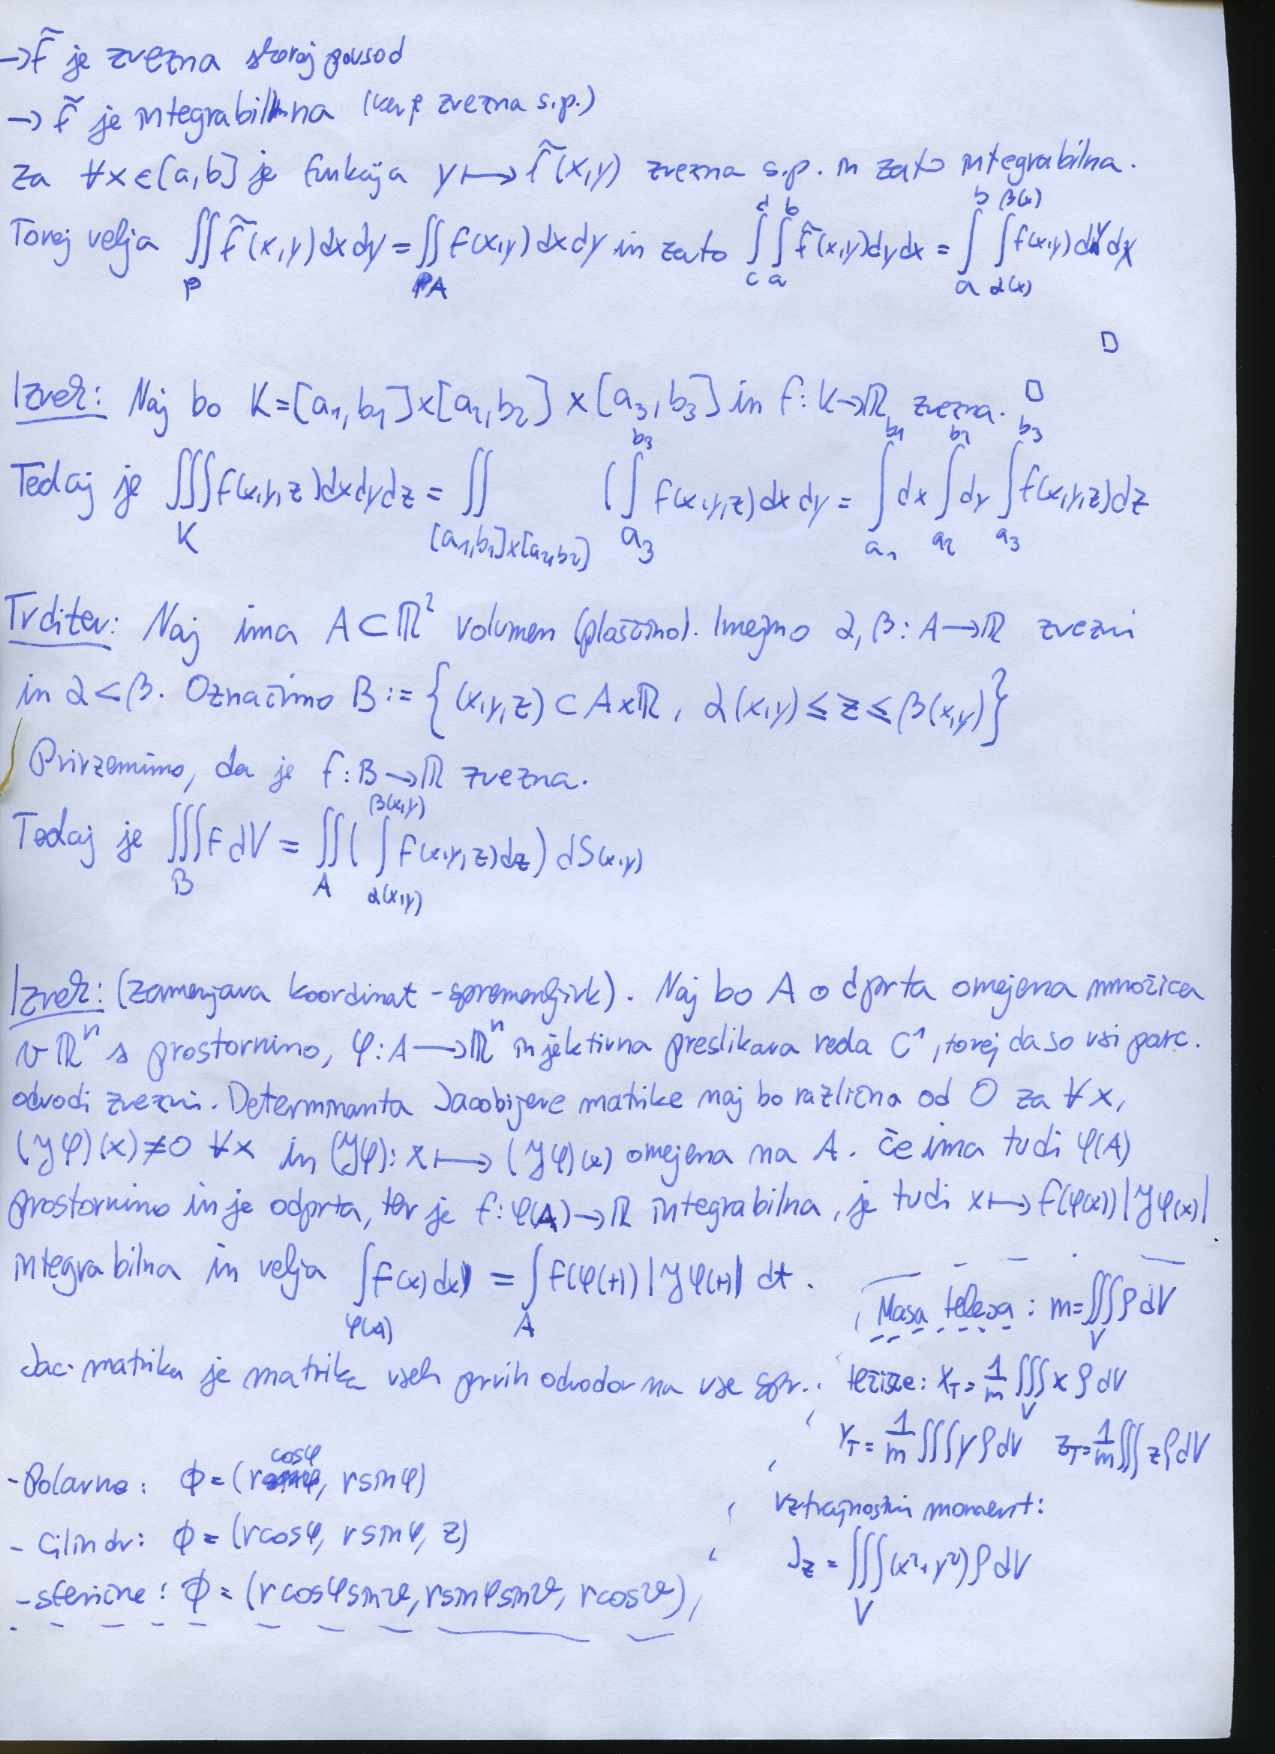 → f̃ je zvezna skoraj povsod
→ f̃ je integrabilna (ker je zvezna s.p.)
Za ∀x∈[a,b] je funkcija y ↦ f̃(x,y) zvezna s.p. in zato integrabilna.
Torej velja ∬_P f̃(x,y)dxdy = ∬_A f(x,y)dxdy in zato ∫_c^d ∫_a^b f̃(x,y)dydx = ∫_a^b ∫_{α(x)}^{β(x)} f(x,y)dydx
□
Izrek: Naj bo K=[a₁,b₁]×[a₂,b₂]×[a₃,b₃] in f: K→ℝ zvezna. □
Tedaj je ∭_K f(x,y,z)dxdydz = ∬_{[a₁,b₁]×[a₂,b₂]} (∫_{a₃}^{b₃} f(x,y,z)dxdy = ∫_{a₁}^{b₁}dx ∫_{a₂}^{b₂}dy ∫_{a₃}^{b₃} f(x,y,z)dz
Trditev: Naj ima A⊂ℝ² volumen (ploščino). Imejmo α,β: A→ℝ zvezni
in α<β. Označimo B:={(x,y,z)⊂A×ℝ, α(x,y)≤z≤β(x,y)}
Privzemimo, da je f: B→ℝ zvezna.
Tedaj je ∭_B f dV = ∬_A (∫_{α(x,y)}^{β(x,y)} f(x,y,z)dz) dS(x,y)
Izrek: (zamenjava koordinat - spremenljivk). Naj bo A odprta omejena množica
v ℝⁿ s prostornino, φ: A→ℝⁿ injektivna preslikava reda C¹, torej da so vsi parc.
odvodi zvezni. Determinanta Jacobijeve matrike naj bo različna od 0 za ∀x,
(Jφ)(x)≠0 ∀x in (Jφ): x↦(Jφ)(x) omejena na A. če ima tudi φ(A)
prostornino in je odprta, ter je f: φ(A)→ℝ integrabilna, je tudi x↦f(φ(x))|Jφ(x)|
integrabilna in velja ∫_{φ(A)} f(x)dx = ∫_A f(φ(t))|Jφ(t)| dt.
Jac. matrika je matrika vseh prvih odvodov na vse spr..
- Polarne: Φ=(r cosφ, r sinφ)
- Cilindr: Φ=(r cosφ, r sinφ, z)
- sferične: Φ=(r cosφ sinϑ, r sinφ sinϑ, r cosϑ)
Masa telesa: m=∭_V ρ dV
težišče: x_T=1/m ∭_V x ρ dV
y_T=1/m ∭ y ρ dV z_T=1/m ∭ z ρ dV
Vztrajnostni moment:
J_z=∭_V (x²+y²) ρ dV